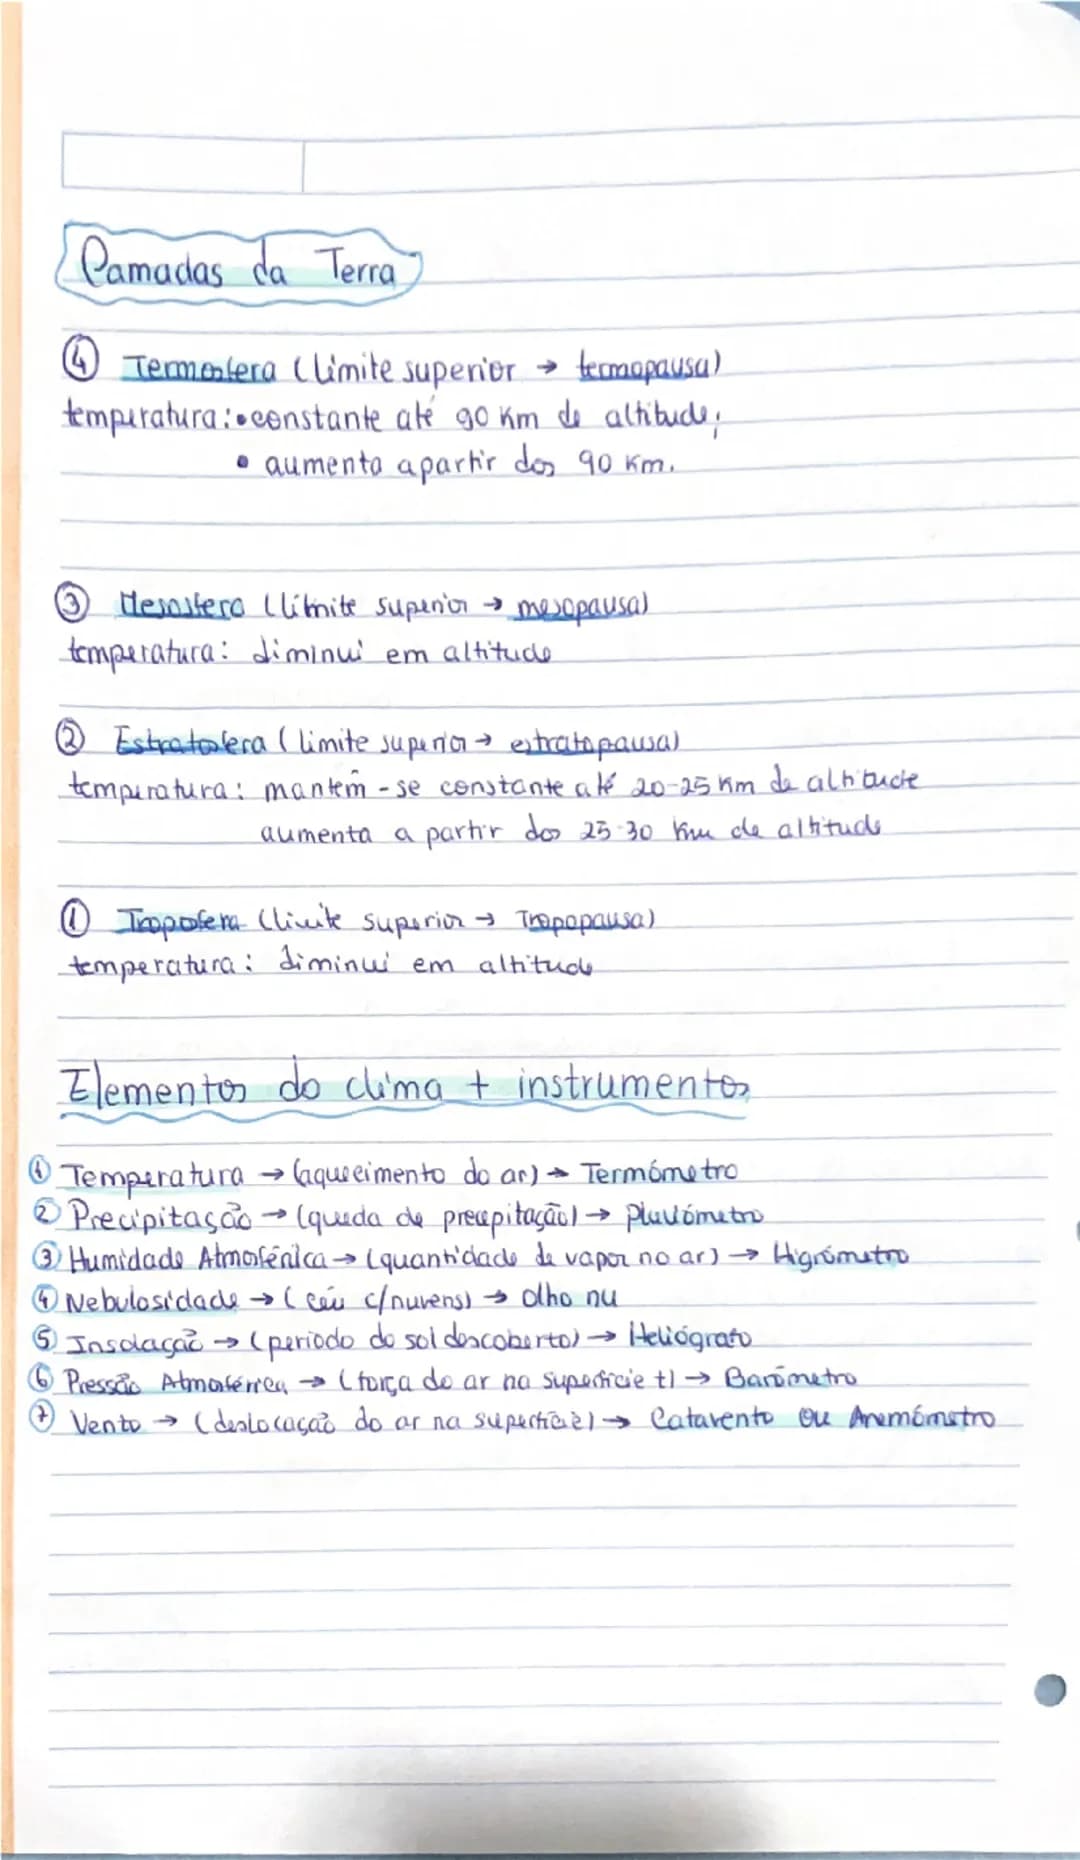 Camadas da Terra
④ Termosfera (limite superior → termopausa)
temperatura: • constante até 90 Km de altitude;
• aumenta apartir dos 90 Km.
③ Mesosfera (limite superior → mesopausa)
temperatura: diminui em altitude
② Estratosfera (limite superior → estratopausa)
temperatura: mantêm-se constante até 20-25 Km de altitude
aumenta a partir dos 25-30 Km de altitude
① Troposfera (limite superior → Tropopausa)
temperatura: diminui em altitude
Elementos do clima + instrumentos
① Temperatura → (aquecimento do ar) → Termómetro
② Precipitação → (queda de precipitação) → Pluviómetro
③ Humidade Atmosférica → (quantidade de vapor no ar) → Higrómetro
④ Nebulosidade → (céu c/nuvens) → olho nu
⑤ Insolação → (periodo do sol descoberto) → Heliógrafo
⑥ Pressão Atmosférica → (força do ar na superfície t) → Barómetro
⑦ Vento → (deslocação do ar na superfície) → Catavento ou Anemómetro